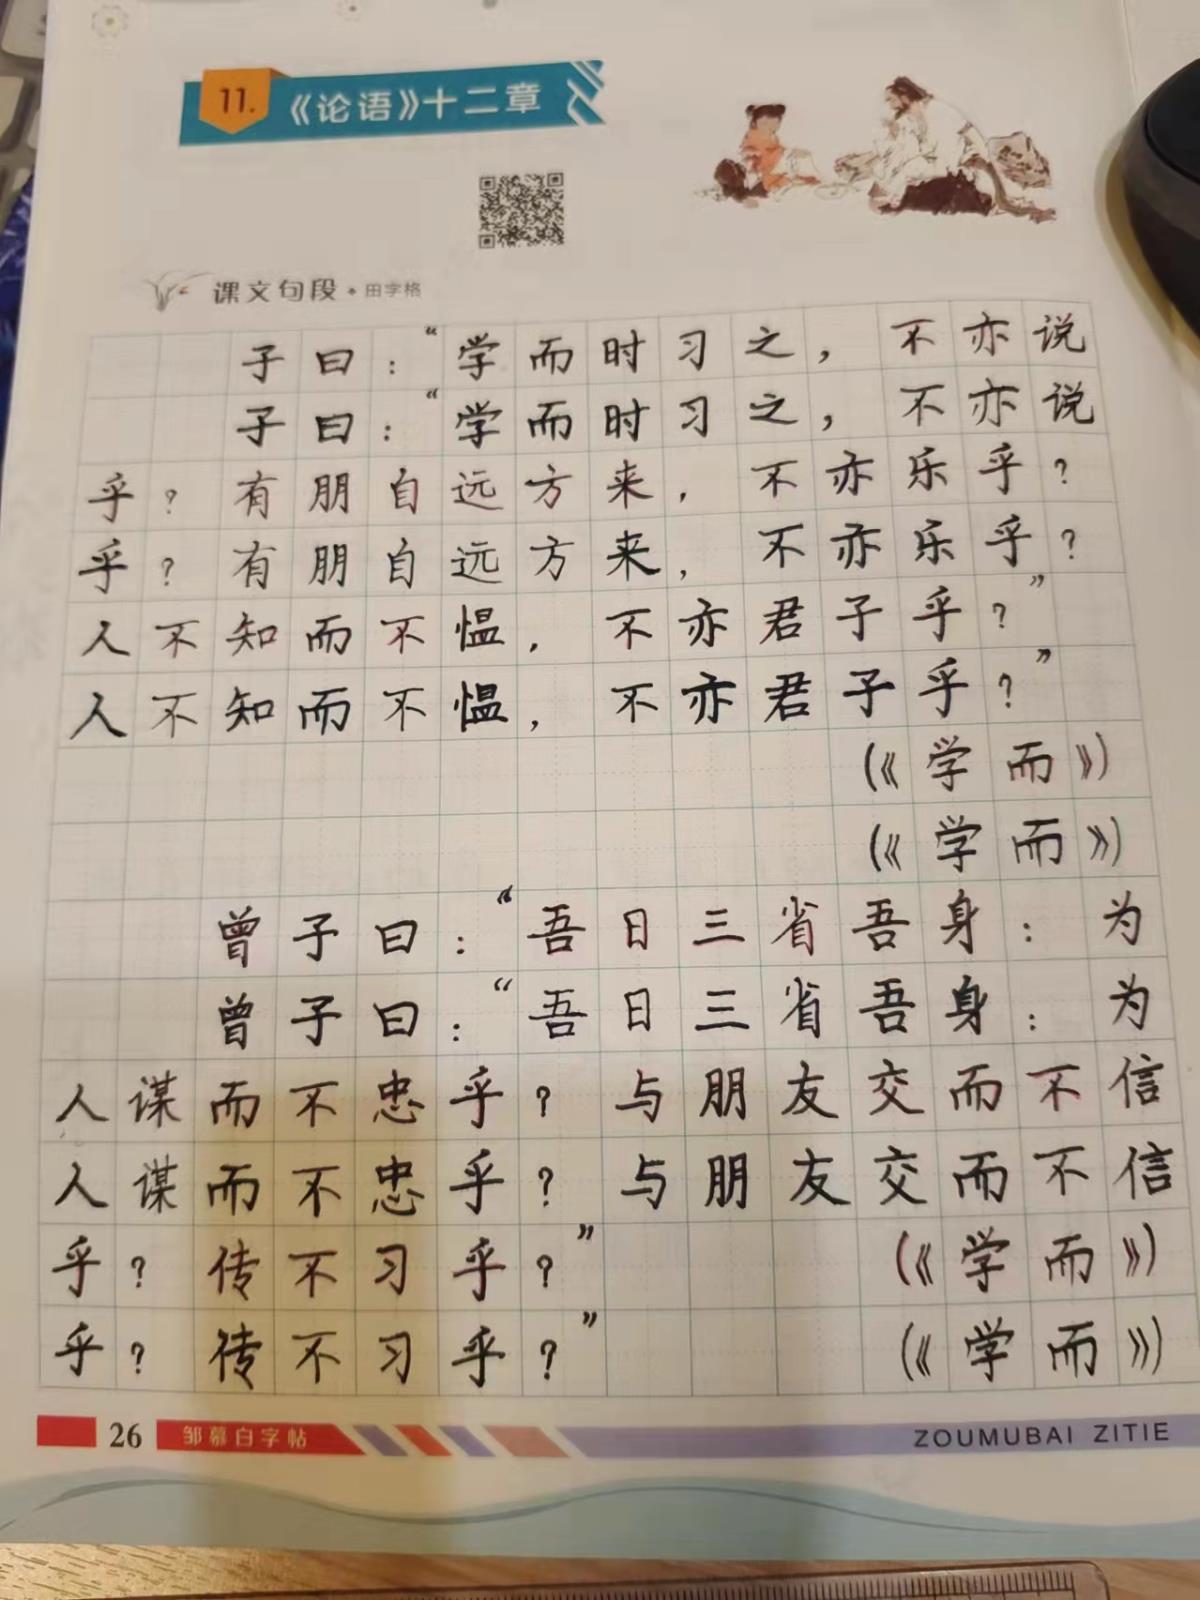 11.《论语》十二章
课文句段·田字格
子曰：“学而时习之，不亦说
子曰：“学而时习之，不亦说
乎？有朋自远方来，不亦乐乎？
乎？有朋自远方来，不亦乐乎？
人不知而不愠，不亦君子乎？”
人不知而不愠，不亦君子乎？”
（《学而》）
（《学而》）
曾子曰：“吾日三省吾身：为
曾子曰：“吾日三省吾身：为
人谋而不忠乎？与朋友交而不信
人谋而不忠乎？与朋友交而不信
乎？传不习乎？”（《学而》）
乎？传不习乎？”（《学而》）
26 邹慕白字帖 ZOUMUBAI ZITIE